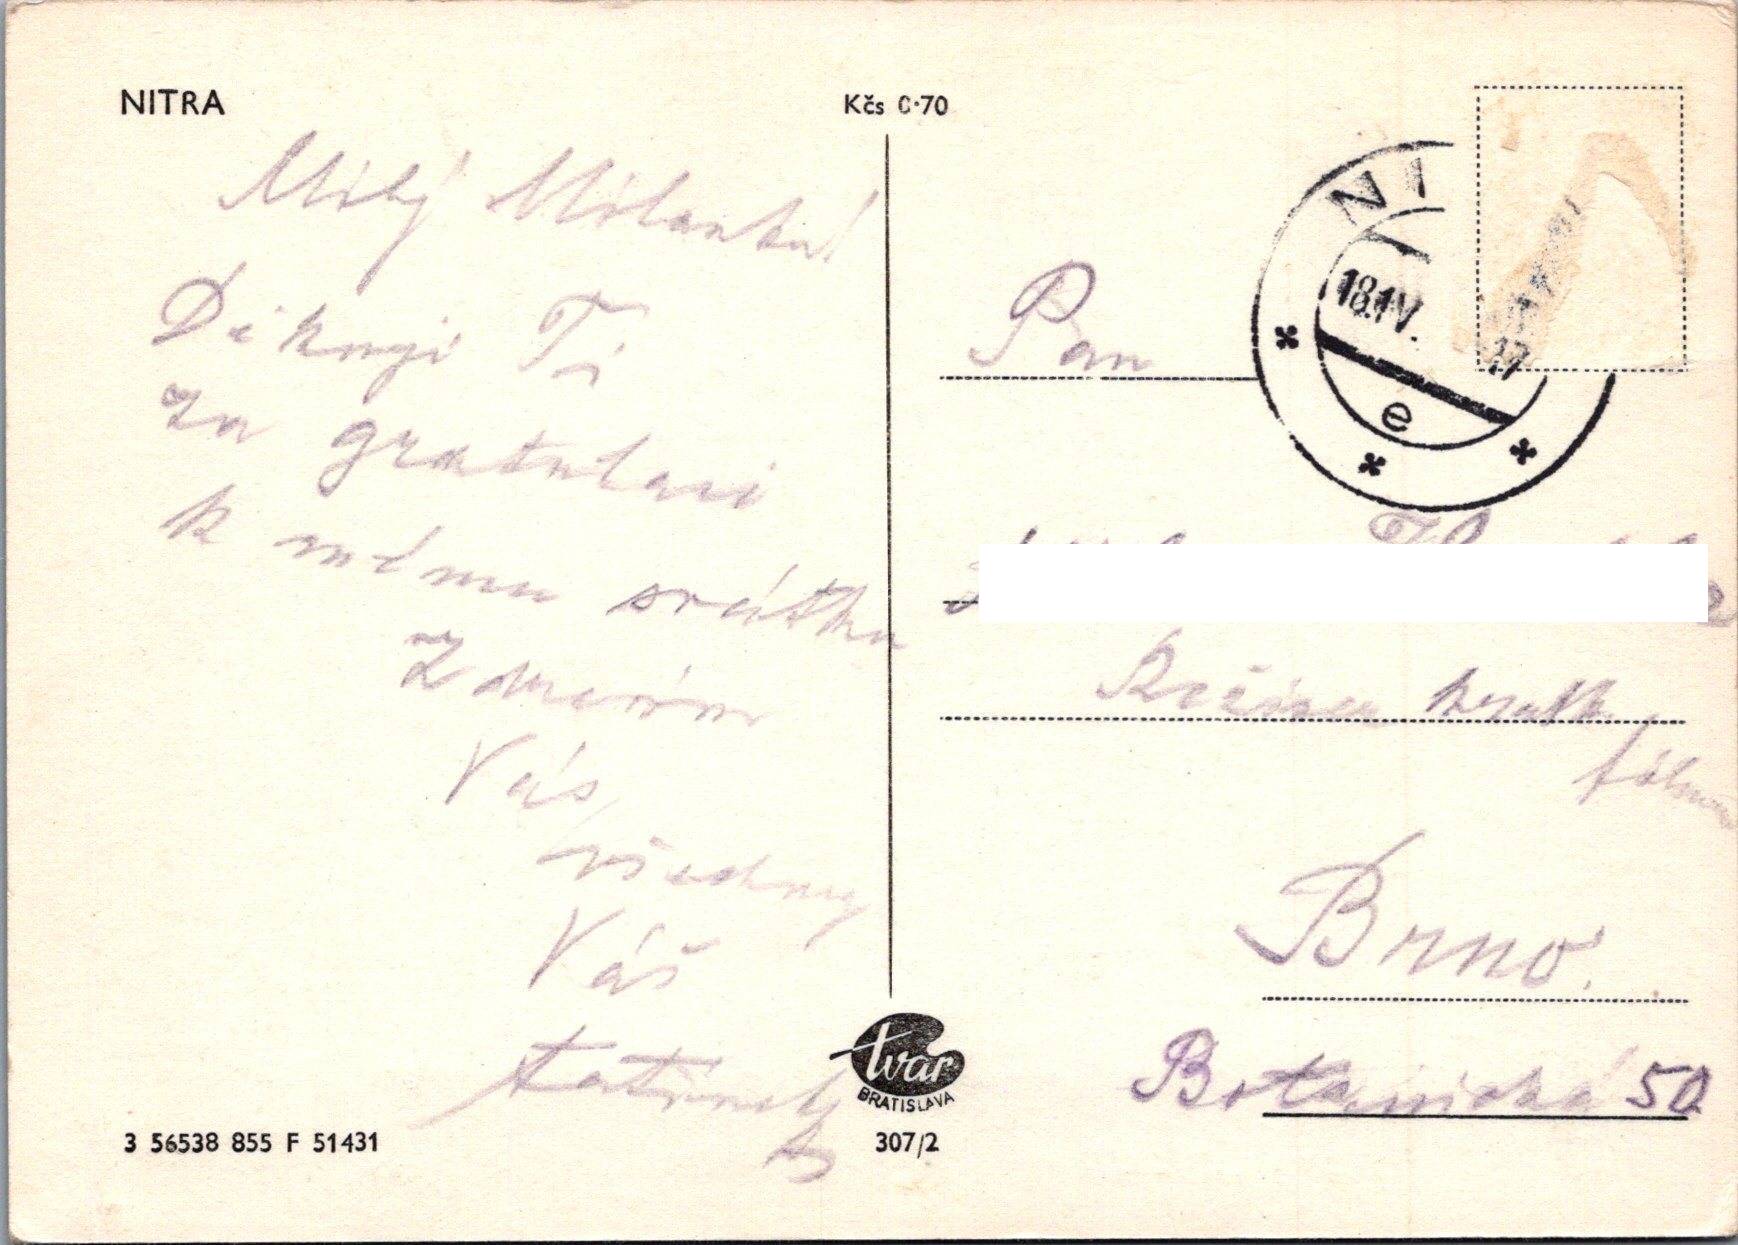 NITRA
Kčs 0·70
Milý Milanku!
Děkuji Ti
za gratulaci
k mému svátku
Zdravím
Vás
všechny
Váš
tatínek
NI
18.IV.
17
e
Pan
Režisér krátk.
filmu
Brno.
Botanická 50
tvar
BRATISLAVA
3 56538 855 F 51431
307/2